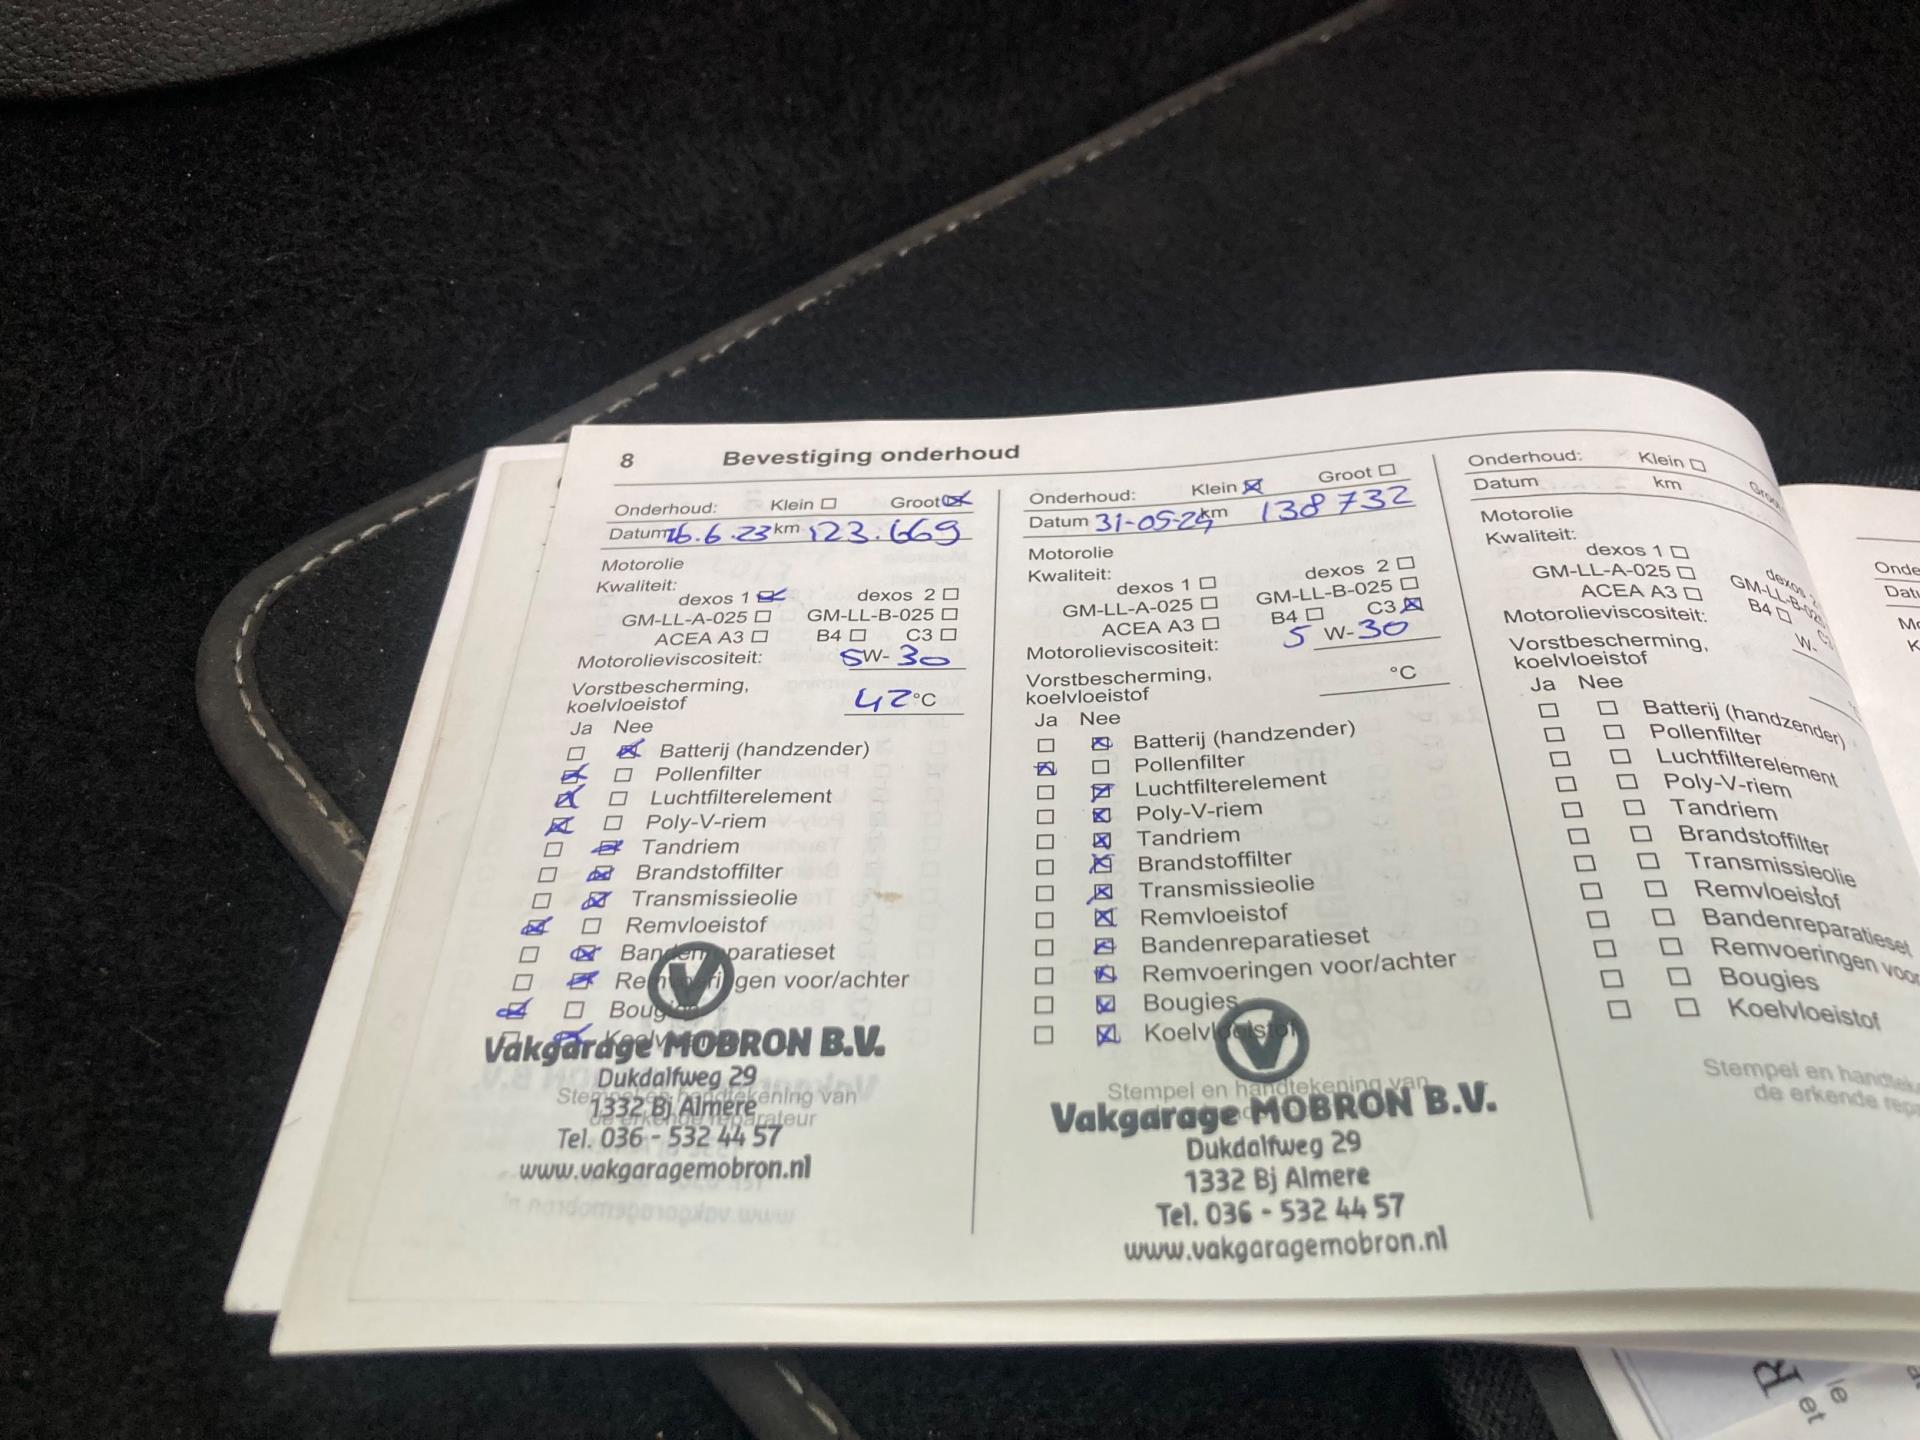 8 Bevestiging onderhoud
Onderhoud: Klein Groot
Datum 26.6.23 km 123.669
Motorolie
Kwaliteit:
dexos 1 dexos 2
GM-LL-A-025 GM-LL-B-025
ACEA A3 B4 C3
Motorolieviscositeit: 5W-30
Vorstbescherming,
koelvloeistof 42 °C
Ja Nee
Batterij (handzender)
Pollenfilter
Luchtfilterelement
Poly-V-riem
Tandriem
Brandstoffilter
Transmissieolie
Remvloeistof
Bandenreparatieset
Remvoeringen voor/achter
Bougies
Koelvloeistof
Vakgarage MOBRON B.V.
Dukdalfweg 29
Stempel en handtekening van
1332 Bj Almere
de erkende reparateur
Tel. 036 - 532 44 57
www.vakgaragemobron.nl
Onderhoud: Klein Groot
Datum 31-05-24 km 138732
Motorolie
Kwaliteit:
dexos 1 dexos 2
GM-LL-A-025 GM-LL-B-025
ACEA A3 B4 C3
Motorolieviscositeit: 5 W-30
Vorstbescherming,
koelvloeistof °C
Ja Nee
Batterij (handzender)
Pollenfilter
Luchtfilterelement
Poly-V-riem
Tandriem
Brandstoffilter
Transmissieolie
Remvloeistof
Bandenreparatieset
Remvoeringen voor/achter
Bougies
Koelvloeistof
Stempel en handtekening van
Vakgarage MOBRON B.V.
Dukdalfweg 29
1332 Bj Almere
Tel. 036 - 532 44 57
www.vakgaragemobron.nl
Onderhoud: Klein
Datum km
Motorolie
Kwaliteit:
dexos 1 dexos 2
GM-LL-A-025 GM-LL-B-025
ACEA A3 B4
Motorolieviscositeit: W-
Vorstbescherming,
koelvloeistof
Ja Nee
Batterij (handzender)
Pollenfilter
Luchtfilterelement
Poly-V-riem
Tandriem
Brandstoffilter
Transmissieolie
Remvloeistof
Bandenreparatieset
Remvoeringen
Bougies
Koelvloeistof
Stempel en
de erkende